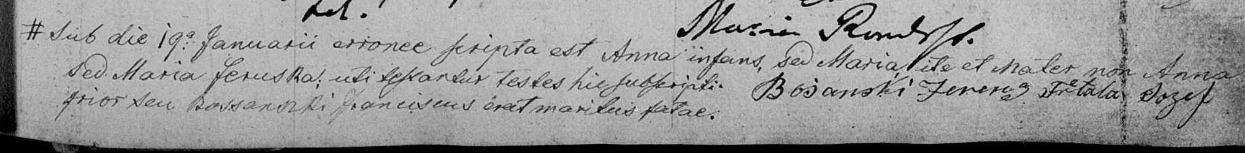 # Sub die 19ª Januarii erronee scripta est Anna infans, sed Maria ite et Mater non Anna
sed Maria Jeruska: uti testantur testes hic subscripti. Bosanski Ferencz Jozef
prior seu Bossanszki Franciscus erat maritus fatae.